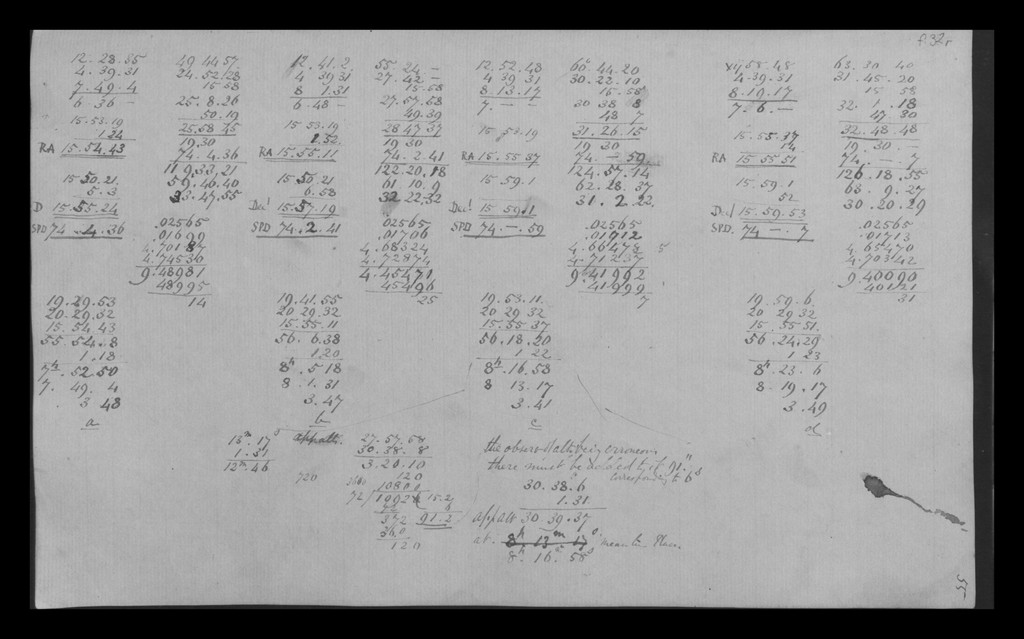 f. 32r
12. 28. 55
4. 39. 31
7. 49. 4
6. 36 -
15. 53. 19
1. 24
RA 15. 54. 43
15 50. 21
5. 3
D 15. 55. 24
SPD 74. 4. 36
49 44 57
24. 52. 28
15 58
25. 8. 26
50. 19
25. 58 45
19. 30
74. 4. 36
119. 33. 21
59. 46. 40
33. 47. 55
.02565
.01699
4.70187
4.74530
9.48981
48995
14
19. 29. 53
20. 29. 32
15. 54. 43
55. 54. 8
1. 18
7h. 52. 50
7. 49. 4
3 48
a
12. 41. 2
4 39 31
8 1. 31
6. 48 -
15 53. 19
1. 52
RA 15. 55. 11
15 50. 21
6. 58
Decl 15. 57. 19
SPD 74. 2. 41
55 24 -
27. 42 -
15. 58
27. 57. 58
49. 39
28 47 37
19 30
74. 2. 41
122. 20. 18
61 10. 9
32 22. 32
.02565
.01706
4.68324
4.72874
4.45471
45496
25
19. 41. 55
20 29. 32
15. 55. 11
56. 6. 38
1. 20
8h. 5. 18
8. 1. 31
3. 47
b
12. 52. 48
4 39 31
8. 13. 17
7. - -
15 53. 19
RA 15. 55 37
15. 59. 1
Decl 15 59. 1
SPD 74. -. 59
60° 44. 20
30. 22. 10
15. 58
30 38 8
48 7
31. 26. 15
19 30
74 - 59
124. 57. 14
62. 28. 37
31. 2. 22
.02565
.01712
4.66478 5
4.71237
9.41992
41999
7
19. 53. 11
20 29 32
15. 55. 37
56. 18. 20
1 22
8h. 16. 58
8 13. 17
3. 41
c
xij 58. 48
4. 39. 31
8. 19. 17
7. 6. -
15. 55. 37
14
RA 15 55 51
15. 59. 1
52
Decl 15. 59. 53
SPD. 74 - 7
63. 30 40
31. 45. 20
15 58
32. 1. 18
47 30
32. 48. 48
19. 30. -
74. - 7
126. 18. 55
63. 9. 27
30. 20. 29
.02565
.01713
4.65470
4.70342
9.40090
40121
31
19. 59. 6
20 29 32
15. 55 51
56. 24. 29
1 23
8h. 23. 6
8. 19. 17
3. 49
d
13m. 17s
1. 31
12m. 46
27. 57. 58
30. 38. 8
3. 20. 10
720 120
3600 10800
72/19924 15. 2
372 91. 2
360
120
the observd alt being erroneous
there must be added to it 91"
corresponding to 6s
30. 38. 6
1. 31
app alt 30. 39. 37
at. 8h 13m 17s mean tm Place.
8h. 16. 58s
55